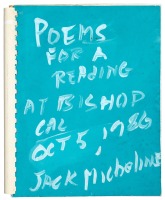 POEMS
FOR A
READING
AT BISHOP
CAL
OCT 5, 1986
JACK MICHELINE